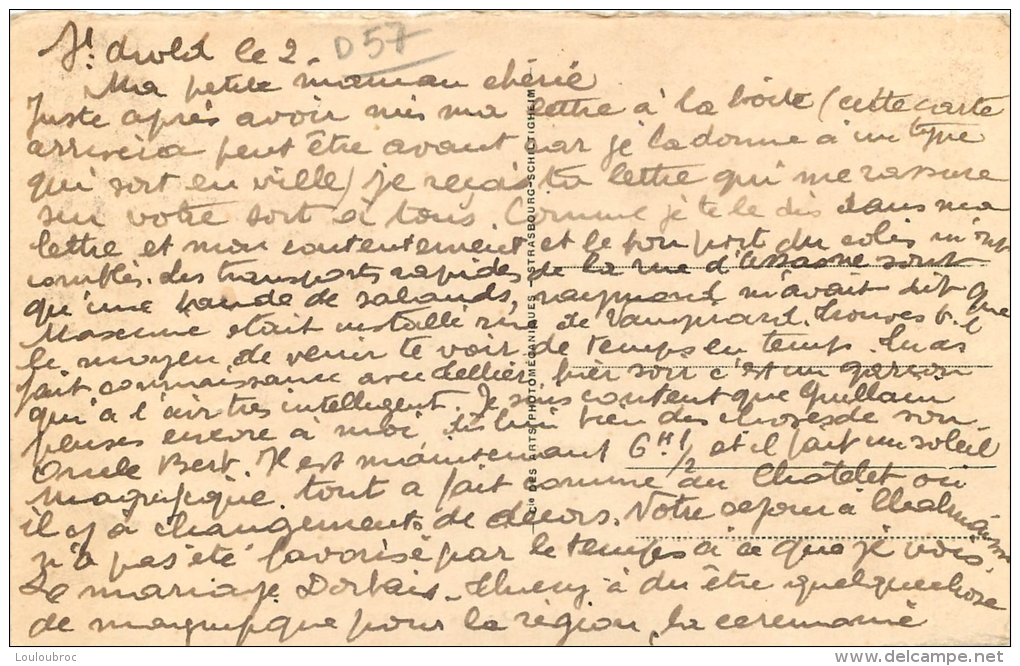 St Avold le 2. D57
Ma petite maman chérie
Juste après avoir mis ma lettre à la boite (cette carte
arrivera peut être avant car je la donne à un type
qui sort en ville) je reçois ta lettre qui me rassure
sur votre sort à tous. Comme je te le dis dans ma
lettre et mon contentement et le bon port du colis m'ont
comblés. des transports rapides de la rue d' sont
qu'une bande de salauds, raymond m'avait dit que
Maxime était installé rue de Vaugirard. trouves t-il
le moyen de venir te voir de temps en temps. tu as
fait connaissance avec hier soir c'est un garçon
qui a l'air très intelligent. Je suis content que
penses encore à moi, dis lui bien des choses de son
Oncle Bert. Il est maintenant 6H 1/2 et il fait un soleil
magnifique tout a fait comme au Chatelet ou
il y a changements de décors. Votre sejour à
n'a pas été favorisé par le temps à ce que je vois.
Le mariage à du être quelque chose
de magnifique pour la région, la ceremonie
Cie DES ARTS PHOTOMÉCANIQUES - STRASBOURG-SCHILTIGHEIM
© Louloubroc
www.delcampe.net